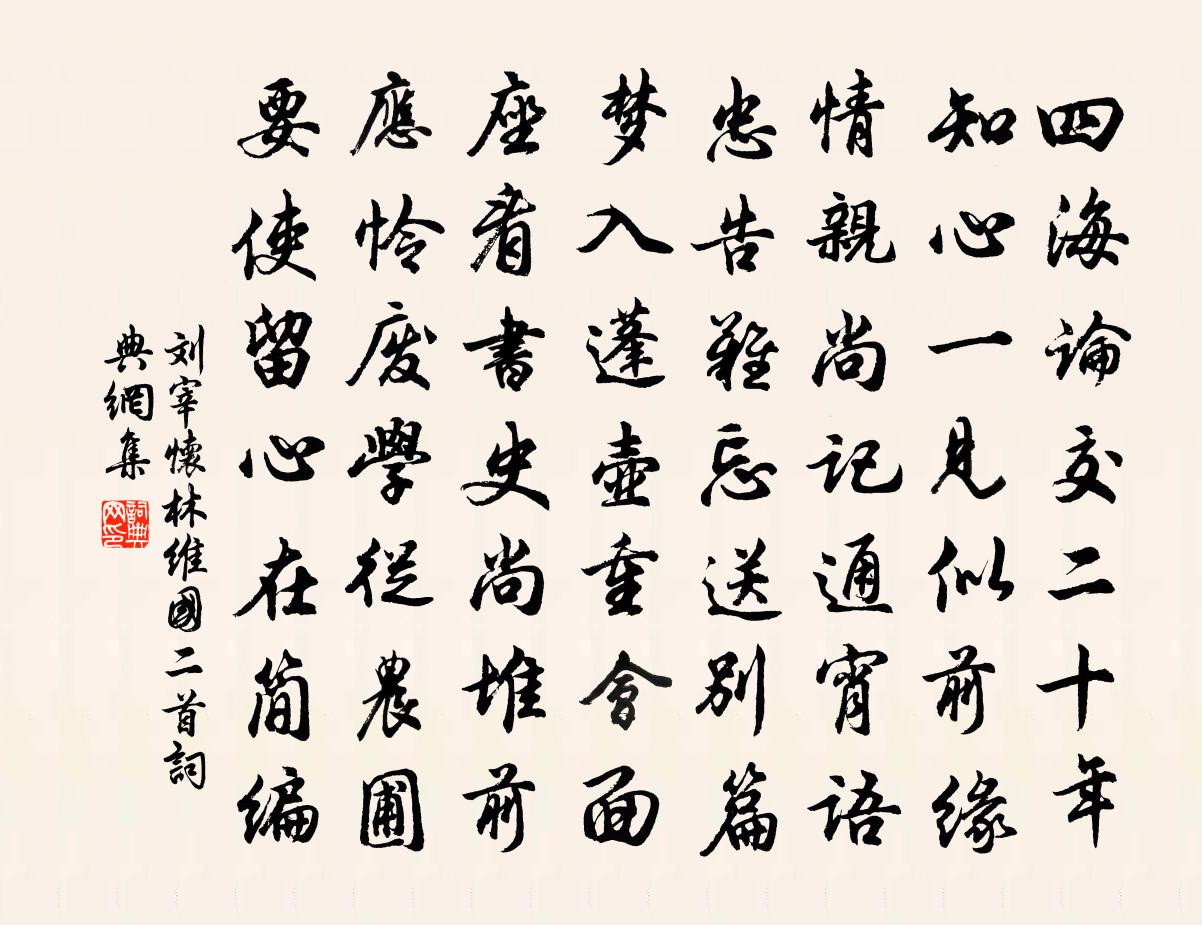 四海論交二十年
知心一見似前緣
情親尚記通宵語
忠告難忘送別篇
梦入蓬壺重會面
座看書史尚堆前
應怜废學從農圃
要使留心在简编
刘宰懷林維國二首詞
典網集
詞典
网印